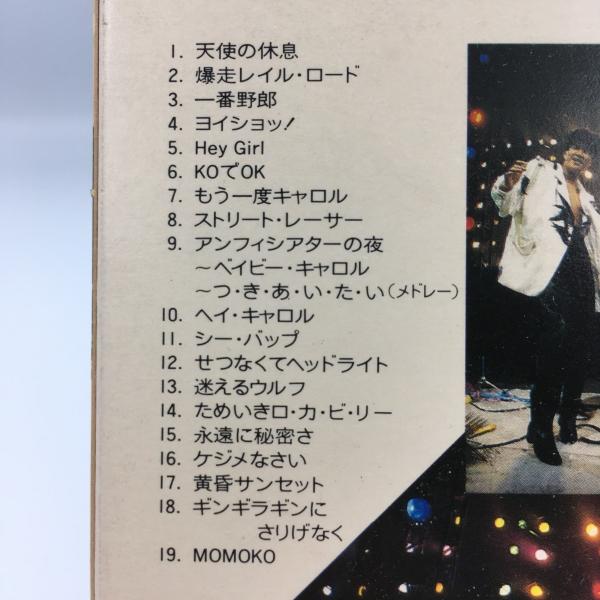 1. 天使の休息
2. 爆走レイル・ロード
3. 一番野郎
4. ヨイショッ!
5. Hey Girl
6. KOでOK
7. もう一度キャロル
8. ストリート・レーサー
9. アンフィシアターの夜
〜ベイビー・キャロル
〜つ・き・あ・い・た・い(メドレー)
10. ヘイ・キャロル
11. シー・バップ
12. せつなくてヘッドライト
13. 迷えるウルフ
14. ためいきロ・カ・ビ・リー
15. 永遠に秘密さ
16. ケジメなさい
17. 黄昏サンセット
18. ギンギラギンに
さりげなく
19. MOMOKO